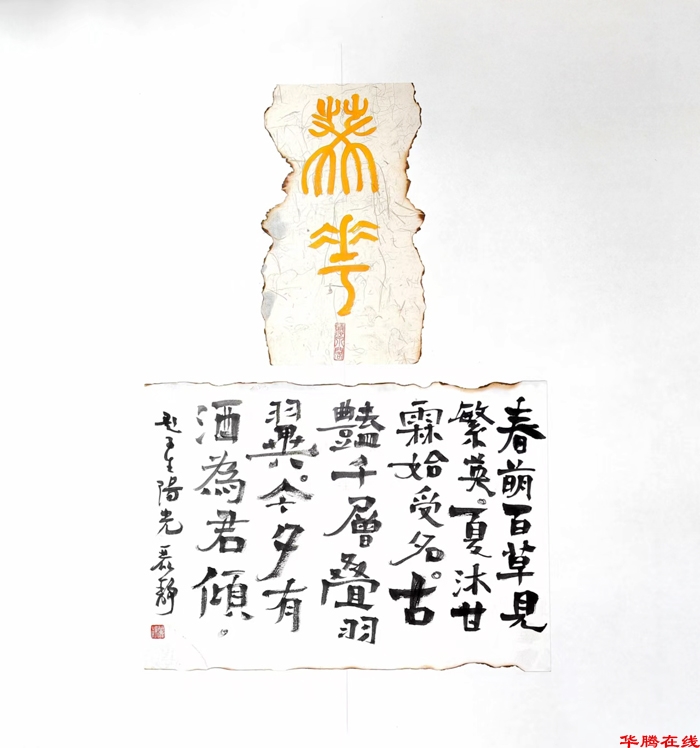 華
春萌百草見
繁英。夏沐甘
霖始受名。古
豔千層疊羽
翼。今夕有
酒為君傾。
陽光 靜
华腾在线